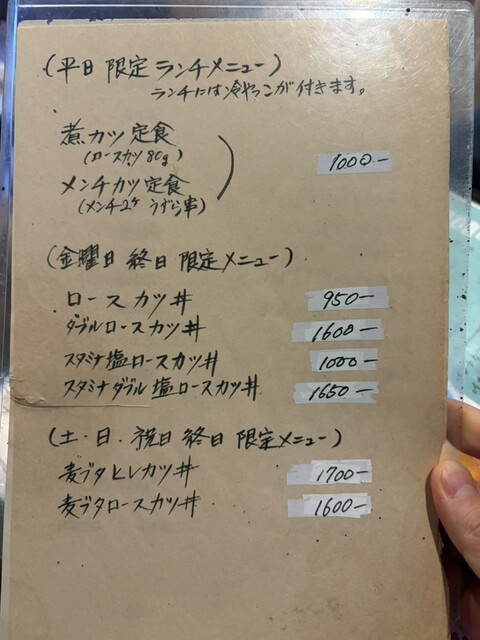 (平日 限定 ランチメニュー)
ランチには冷やっこが付きます。
煮カツ定食
(ロースカツ80g)
1000-
メンチカツ定食
(メンチ2ケ うずら串)
(金曜日 終日 限定メニュー)
ロースカツ丼 950-
ダブルロースカツ丼 1600-
スタミナ塩ロースカツ丼 1000-
スタミナダブル塩ロースカツ丼 1650-
(土・日・祝日 終日 限定メニュー)
麦ブタヒレカツ丼 1700-
麦ブタロースカツ丼 1600-